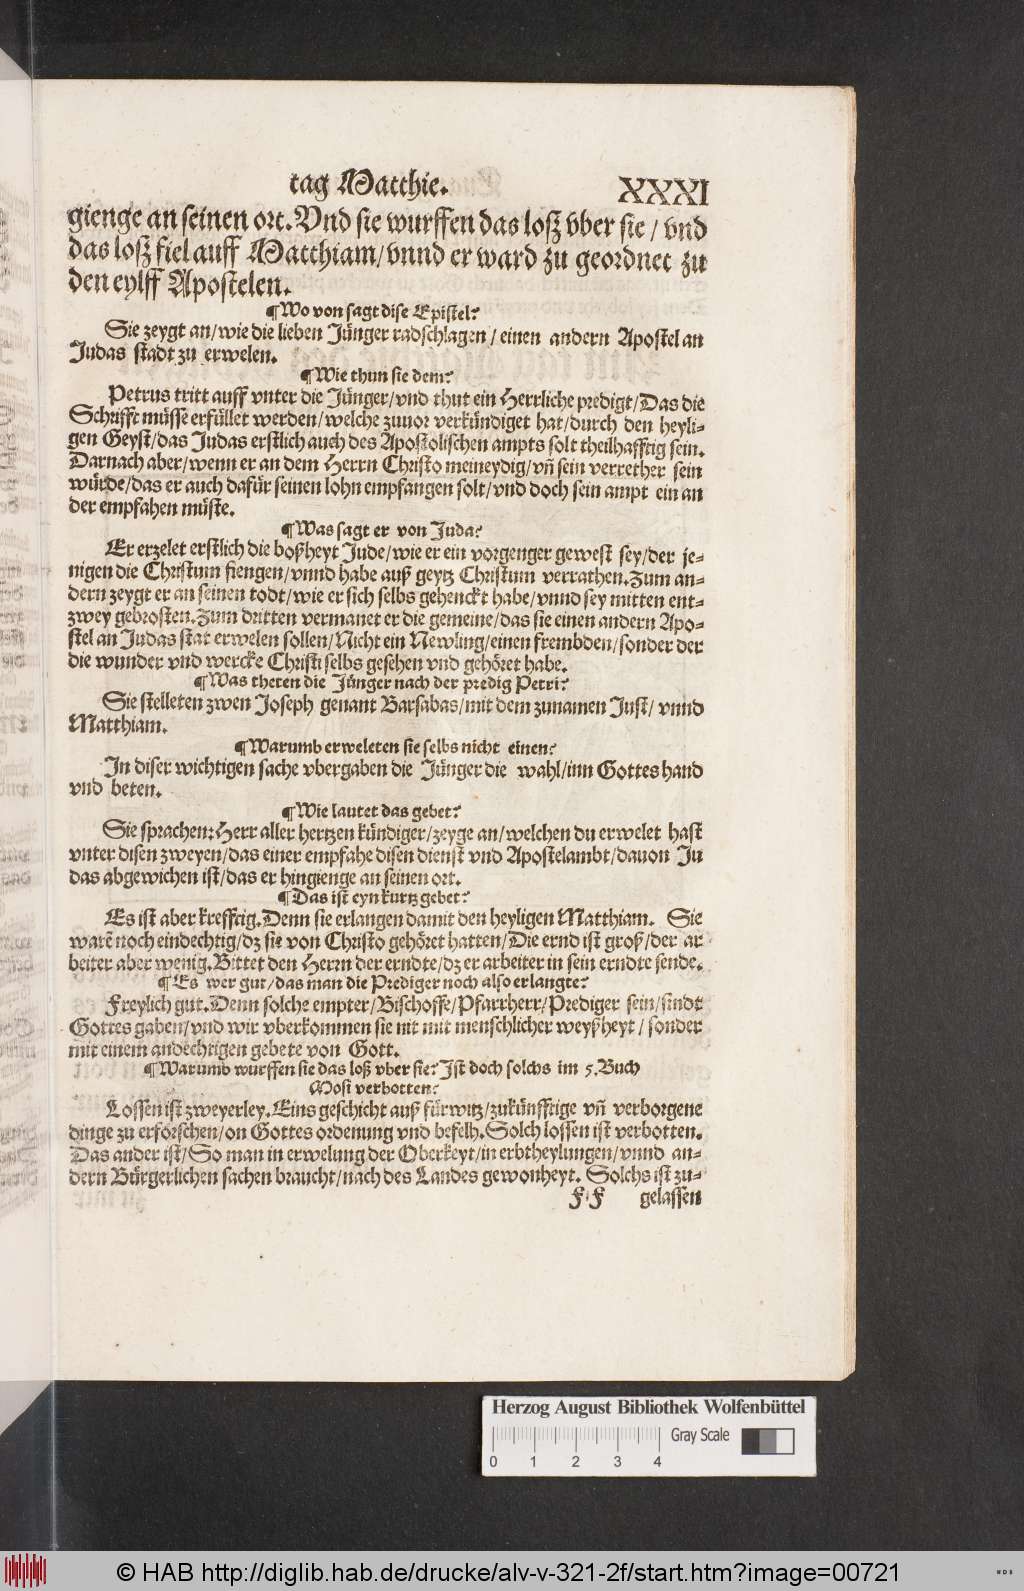 tag Matthie.
XXXI
gienge an seinen ort. Vnd sie wurffen das loß vber sie / vnd
das loß fiel auff Matthiam / vnnd er ward zu geordnet zu
den eylff Apostelen.
¶ Wo von sagt dise Epistel?
Sie zeygt an / wie die lieben Jünger radschlagen / einen andern Apostel an
Judas stadt zu erwelen.
¶ Wie thun sie dem?
Petrus tritt auff vnter die Jünger / vnd thut ein Herrliche predigt / Das die
Schrifft müsse erfüllet werden / welche zuuor verkündiget hat / durch den heyli-
gen Geyst / das Judas erstlich auch des Apostolischen ampts solt theilhafftig sein.
Darnach aber / wenn er an dem Herrn Christo meineydig / vñ sein verrether sein
würde / das er auch dafür seinen lohn empfangen solt / vnd doch sein ampt ein an
der empfahen müste.
¶ Was sagt er von Juda?
Er erzelet erstlich die boßheyt Jude / wie er ein vorgenger gewest sey / der je-
nigen die Christum fiengen / vnnd habe auß geytz Christum verrathen. Zum an-
dern zeygt er an seinen todt / wie er sich selbs gehenckt habe / vnnd sey mitten ent-
zwey gebrosten. Zum dritten vermanet er die gemeine / das sie einen andern Apo-
stel an Judas stat erwelen sollen / Nicht ein Newling / einen frembden / sonder der
die wunder vnd wercke Christi selbs gesehen vnd gehöret habe.
¶ Was theten die Jünger nach der predig Petri?
Sie stelleten zwen Joseph genant Barsabas / mit dem zunamen Just / vnnd
Matthiam.
¶ Warumb erweleten sie selbs nicht einen?
In diser wichtigen sache vbergaben die Jünger die wahl / inn Gottes hand
vnd beten.
¶ Wie lautet das gebet?
Sie sprachen: Herr aller hertzen kündiger / zeyge an / welchen du erwelet hast
vnter disen zweyen / das einer empfahe disen dienst vnd Apostelambt / dauon Ju
das abgewichen ist / das er hingienge an seinen ort.
¶ Das ist eyn kurtz gebet?
Es ist aber krefftig. Denn sie erlangen damit den heyligen Matthiam. Sie
warẽ noch eindechtig / dz sie von Christo gehöret hatten / Die ernd ist groß / der ar
beiter aber wenig. Bittet den Herrn der erndte / dz er arbeiter in sein erndte sende.
¶ Es wer gut / das man die Prediger noch also erlangte?
Freylich gut. Denn solche empter / Bischoffe / Pfarrherr / Prediger sein / sindt
Gottes gaben / vnd wir vberkommen sie nit mit menschlicher weyßheyt / sonder
mit einem andechtigen gebete von Gott.
¶ Warumb wurffen sie das loß vber sie? Ist doch solchs im 5. Buch
Mosi verbotten?
Lossen ist zweyerley. Eins geschicht auß fürwitz / zukünfftige vñ verborgene
dinge zu erforschen / on Gottes ordenung vnd befelh. Solch lossen ist verbotten.
Das ander ist / So man in erwelung der Oberkeyt / in erbtheylungen / vnnd an-
dern Bürgerlichen sachen braucht / nach des Landes gewonheyt. Solchs ist zu-
F F gelassen
Herzog August Bibliothek Wolfenbüttel
Gray Scale
0 1 2 3 4
© HAB http://diglib.hab.de/drucke/alv-v-321-2f/start.htm?image=00721